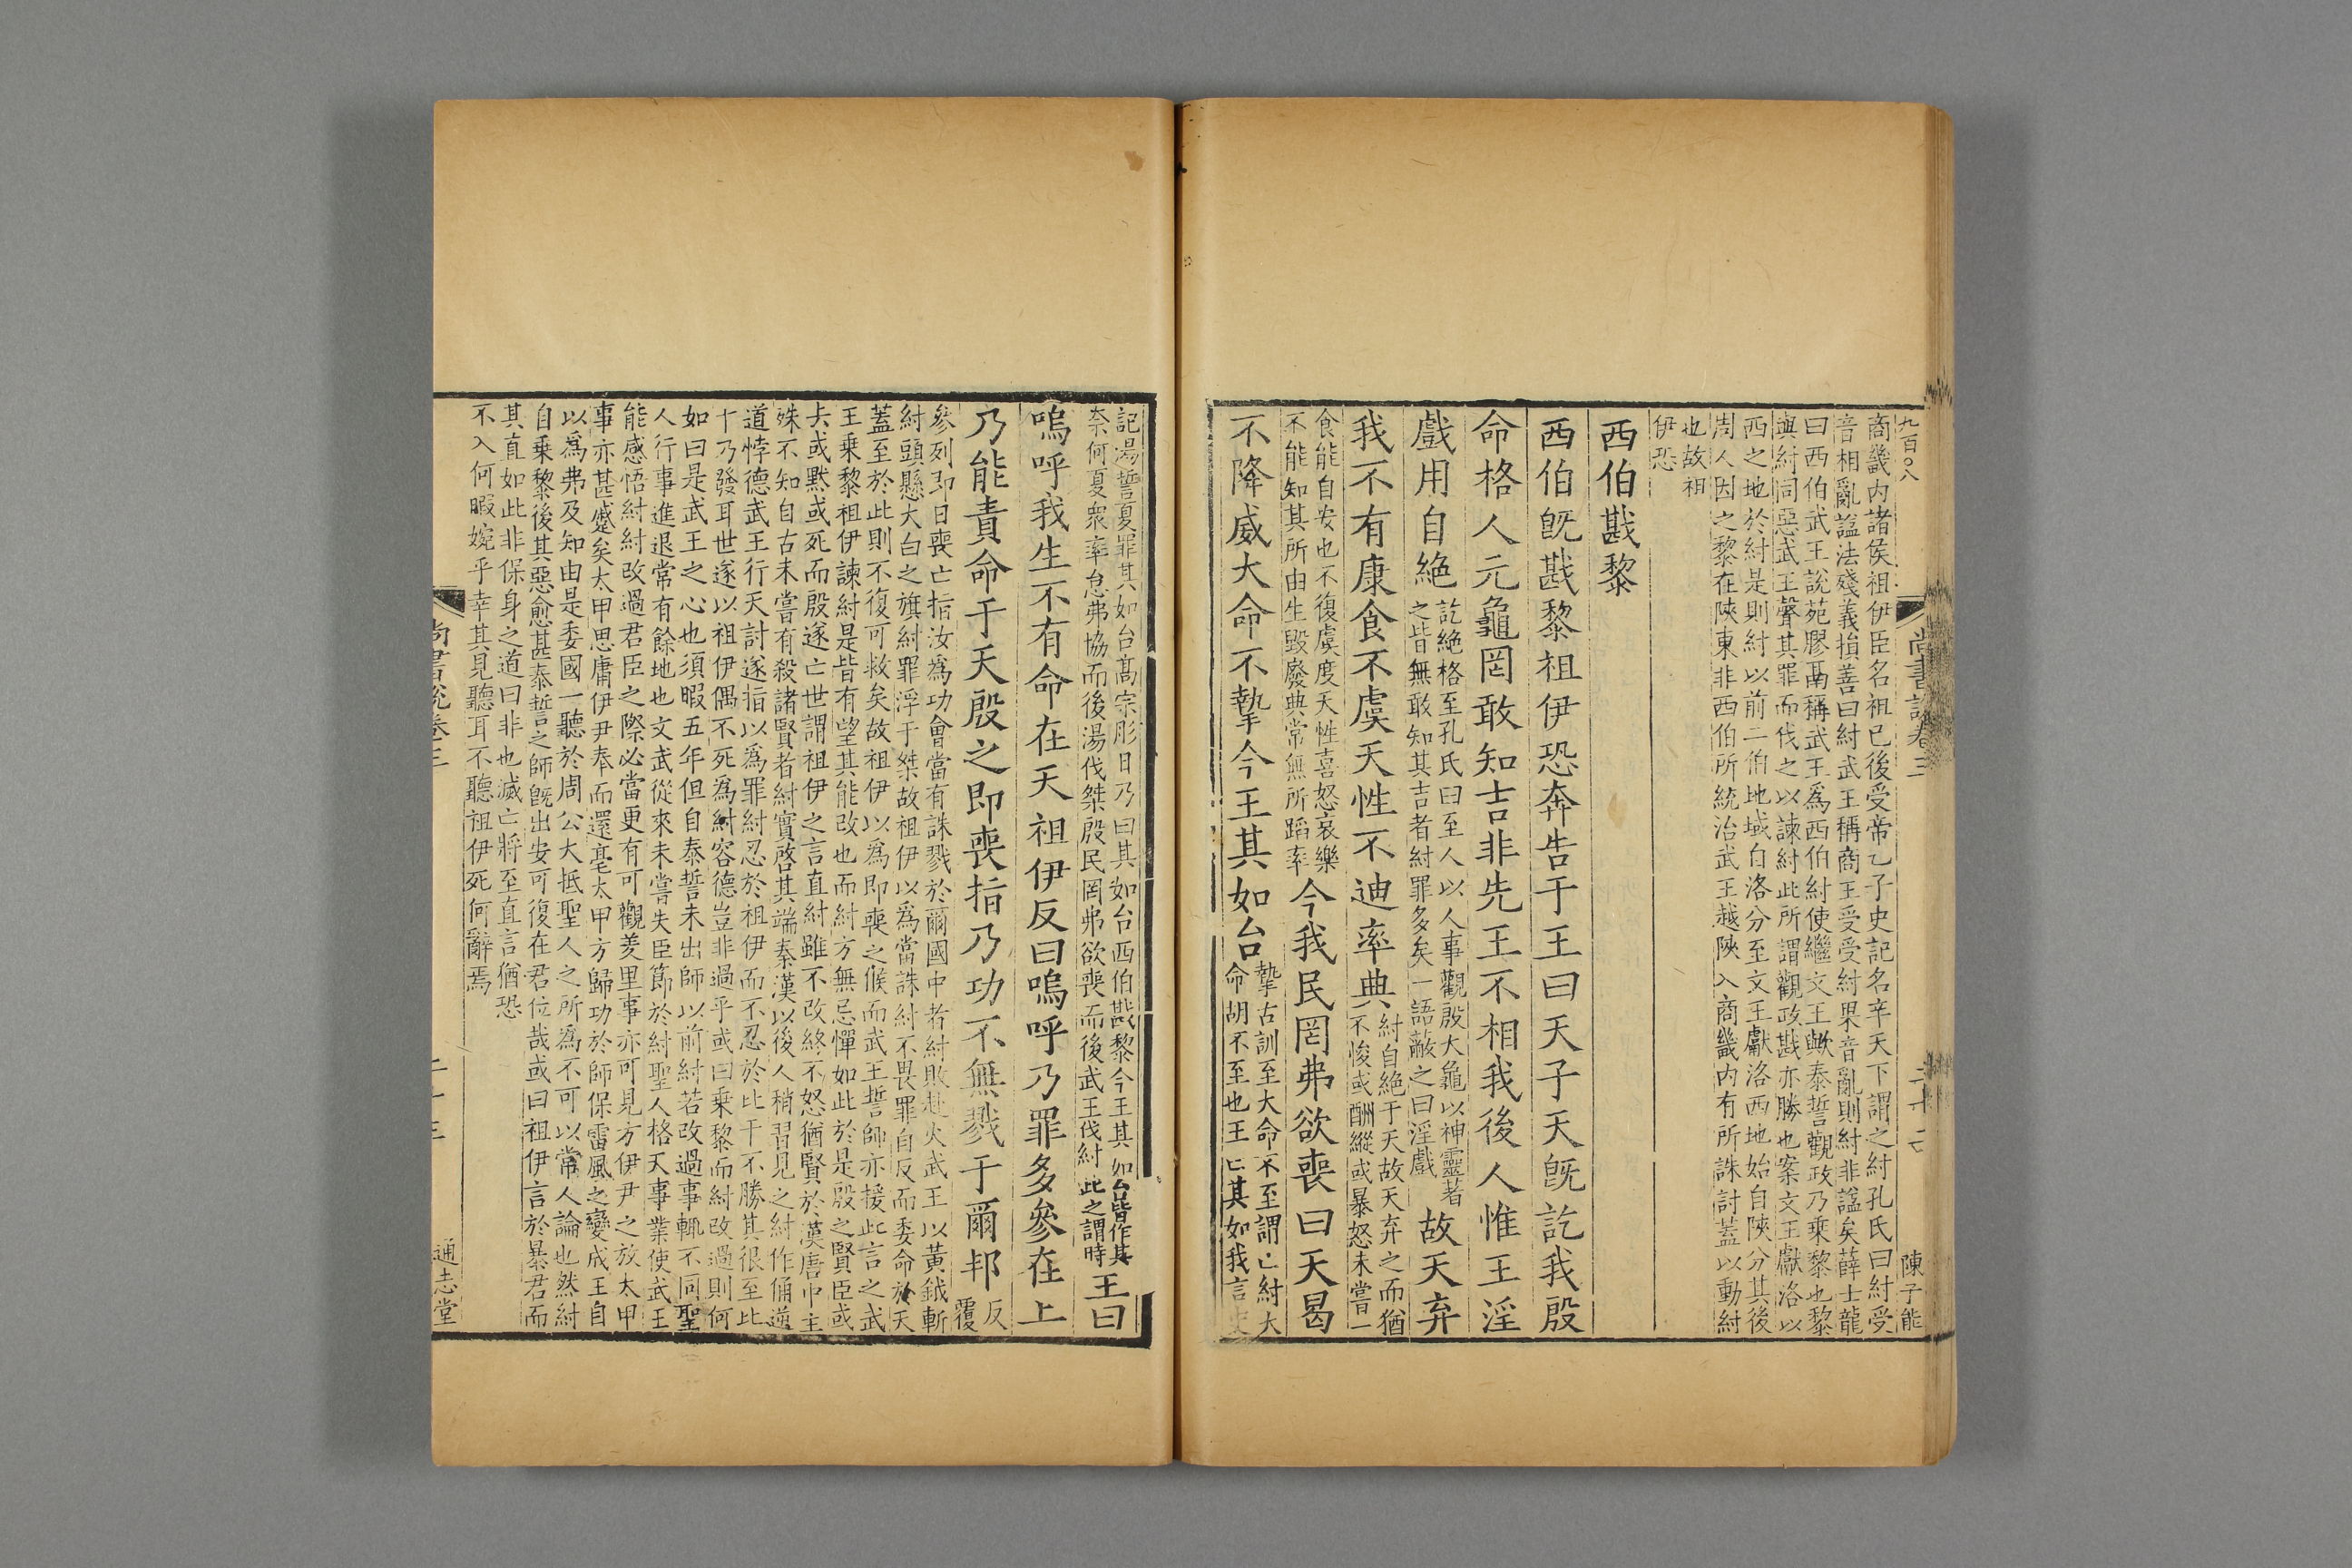 九百〇八
尚書說卷三
陳子能
商畿内諸侯祖伊臣名祖已後受帝乙子史記名辛天下謂之紂孔氏曰紂受
音相亂諡法殘義損善曰紂武王稱商王受受紂果音亂則紂非諡矣薛士龍
曰西伯武王說苑膠鬲稱武王爲西伯紂使繼文王歟泰誓觀政乃乗黎也黎
與紂同惡武王聲其罪而伐之以諫紂此所謂觀政戡亦勝也案文王獻洛以
西之地於紂是則紂以前二伯地域自洛分至文王獻洛西地始自陜分其後
周人因之黎在陜東非西伯所統治武王越陜入商畿内有所誅討蓋以動紂
也故祖
伊恐
西伯戡黎
西伯旣戡黎祖伊恐奔告于王曰天子天旣訖我殷
命格人元龜罔敢知吉非先王不相我後人惟王淫
戲用自絶
訖絶格至孔氏曰至人以人事觀殷大龜以神靈著
之皆無敢知其吉者紂罪多矣一語蔽之曰淫戲
故天弃
我不有康食不虞天性不迪率典
紂自絶于天故天弃之而猶
不悛或酗縱或暴怒未嘗一
食能自安也不復虞度天性喜怒哀樂
不能知其所由生毀廢典常無所蹈率
今我民罔弗欲喪曰天曷
不降威大命不摯今王其如台
摯古訓至大命不至謂亡紂大
命胡不至也王亡其如我言
記湯誓夏罪其如台高宗肜日乃曰其如台西伯戡黎今王其如台皆作其
柰何夏衆率怠弗協而後湯伐桀殷民罔弗欲喪而後武王伐紂此之謂時
王曰
嗚呼我生不有命在天祖伊反曰嗚呼乃罪多參在上
乃能責命于天殷之即喪指乃功不無戮于爾邦
反
覆
參列即日喪亡指汝爲功會當有誅戮於爾國中者紂敗赴火武王以黄鉞斬
紂頭懸大白之旗紂罪浮于桀故祖伊以爲當誅紂不畏罪自反而委命於天
蓋至於此則不復可救矣故祖伊以爲即喪之候而武王誓師亦援此言之武
王乗黎祖伊諫紂是皆有望其能改也而紂方無忌憚如此於是殷之賢臣或
去或黙或死而殷遂亡世謂祖伊之言直紂雖不改終不怒猶賢於漢唐中主
殊不知自古未嘗有殺諸賢者紂實啓其端秦漢以後人稍習見之紂作俑逆
道悖德武王行天討遂指以爲罪紂忍於祖伊而不忍於比干不勝其很至此
十乃發耳世遂以祖伊偶不死爲紂容德豈非過乎或曰乗黎而紂改過則何
如曰是武王之心也須暇五年但自泰誓未出師以前紂若改過事輒不同聖
人行事進退常有餘地也文武從來未嘗失臣節於紂聖人格天事業使武王
能感悟紂紂改過君臣之際必當更有可觀羑里事亦可見方伊尹之放太甲
事亦甚蹙矣太甲思庸伊尹奉而還亳太甲方歸功於師保雷風之變成王自
以爲弗及知由是委國一聽於周公大抵聖人之所爲不可以常人論也然紂
自乗黎後其惡愈甚泰誓之師旣出安可復在君位哉或曰祖伊言於暴君而
其直如此非保身之道曰非也滅亡將至直言猶恐
不入何暇婉乎幸其見聽耳不聽祖伊死何辭焉
尚書說卷三
通志堂